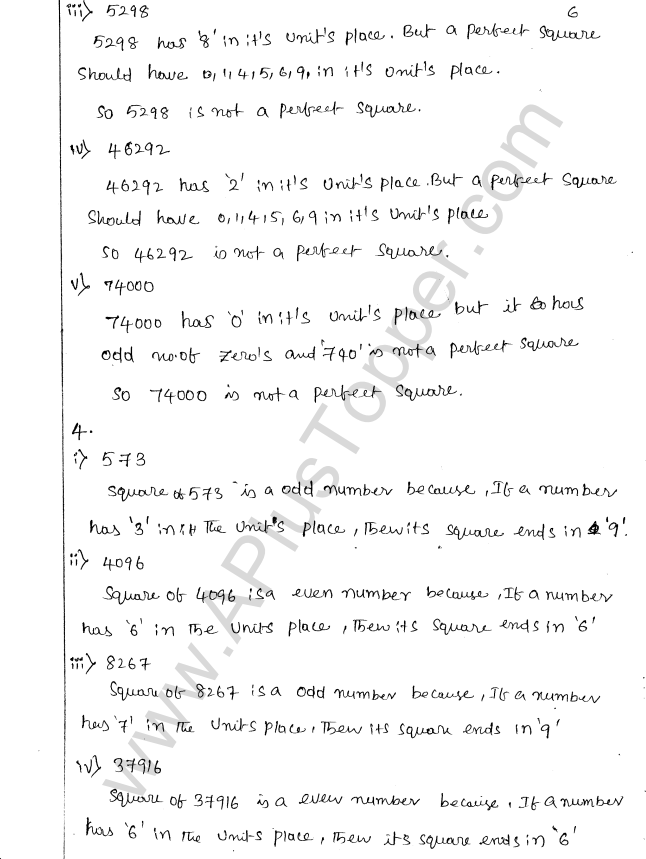 iii) 5298 6
5298 has '8' in it's unit's place. But a perfect square
should have 0,1,4,5,6,9, in it's unit's place.
So 5298 is not a perfect square.
iv) 46292
46292 has '2' in it's unit's place. But a perfect square
should have 0,1,4,5,6,9 in it's unit's place
So 46292 is not a perfect square.
v) 74000
74000 has '0' in it's unit's place but it has
odd no.of zero's and '740' is not a perfect square
So 74000 is not a perfect square.
4.
i) 573
Square of 573 is a odd number because, If a number
has '3' in it the unit's place, then its square ends in '9'.
ii) 4096
Square of 4096 is a even number because, If a number
has '6' in the units place, then its square ends in '6'
iii) 8267
Square of 8267 is a odd number because, If a number
has '7' in the units place, then its square ends in '9'
iv) 37916
Square of 37916 is a even number because, If a number
has '6' in the units place, then its square ends in '6'
www.APlusTopper.com